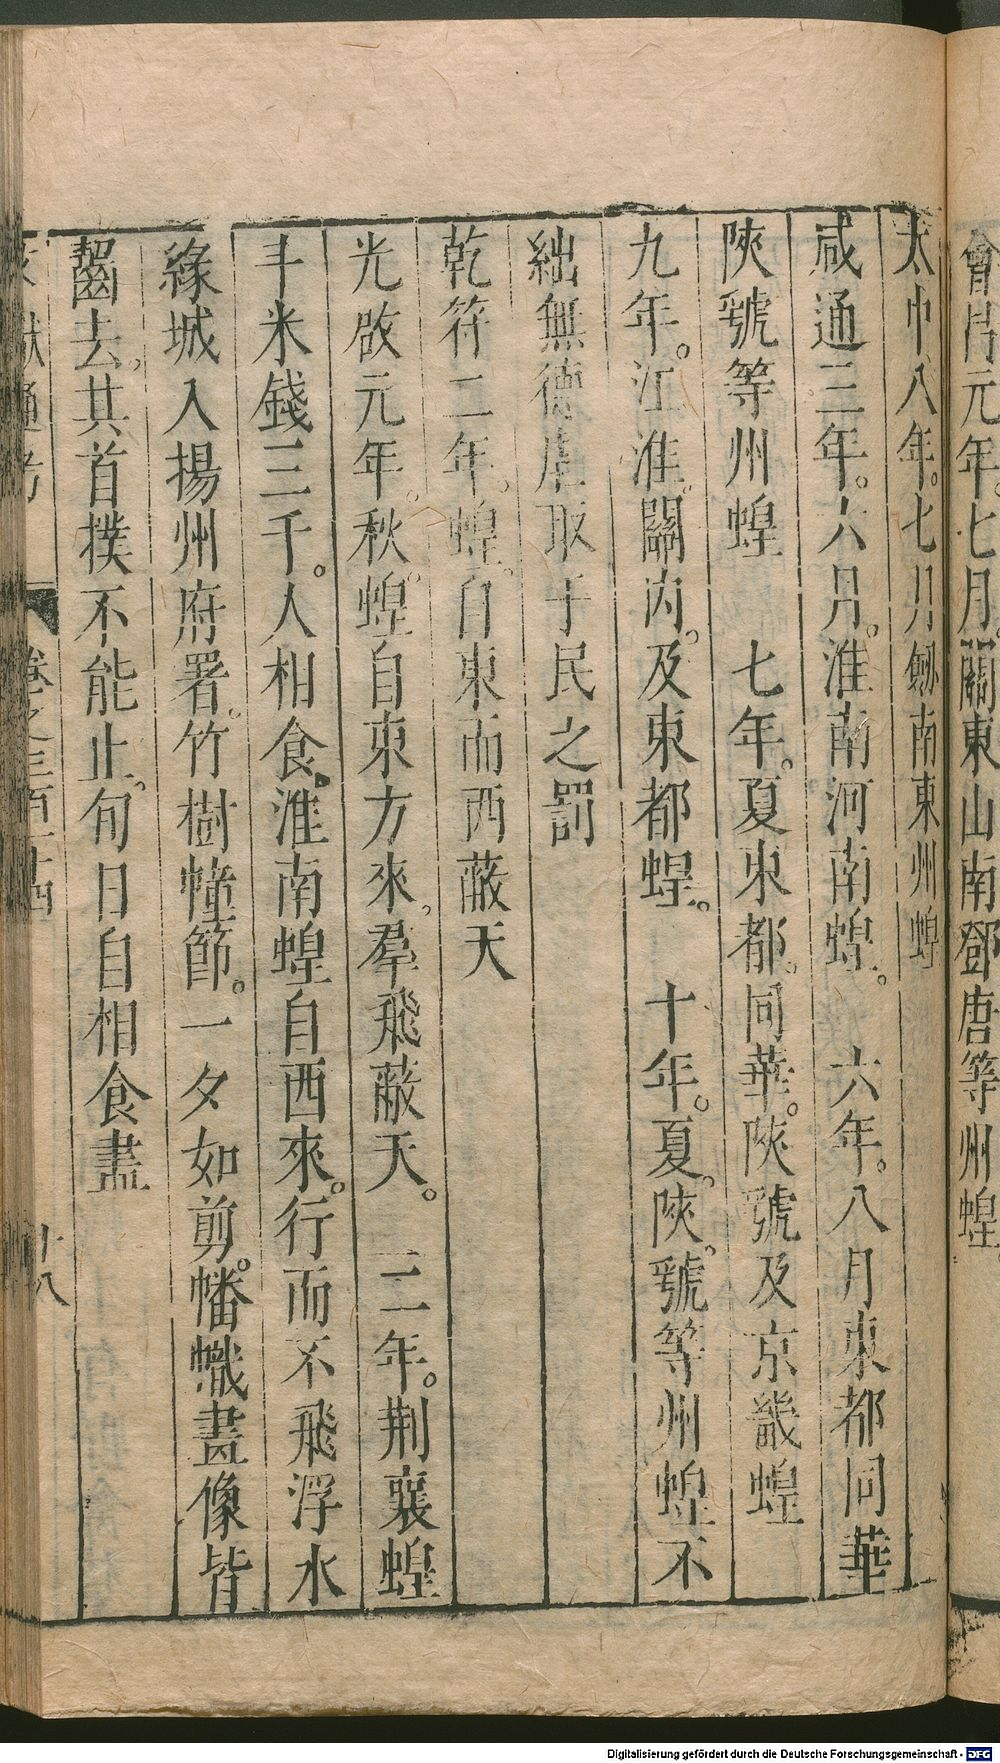 會昌元年七月關東山南鄧唐等州蝗
大中八年七月劒南東州蝗
咸通三年六月淮南河南蝗 六年八月東都同華
陝虢等州蝗 七年夏東都同華陝虢及京畿蝗
九年江淮關内及東都蝗 十年夏陝虢等州蝗不
絀無德虐取于民之罰
乾符二年蝗自東而西蔽天
光啟元年秋蝗自東方來羣飛蔽天 二年荆襄蝗
斗米錢三千人相食淮南蝗自西來行而不飛浮水
緣城入揚州府署竹樹幢節一夕如剪幡幟畫像皆
齧去其首撲不能止旬日自相食盡
文獻通考 卷之三百十四 十八
Digitalisierung gefördert durch die Deutsche Forschungsgemeinschaft - DFG